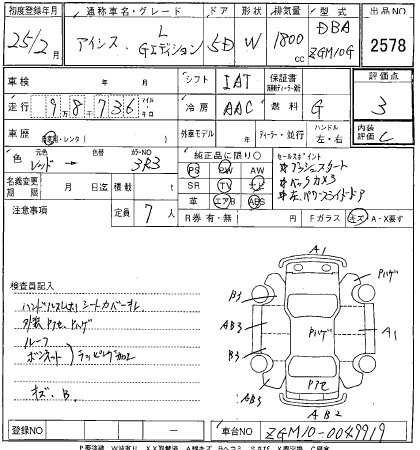 初度登録年月 通称車名・グレード ドア 形状 排気量 型式 出品NO
25/2月 アイシス L Gエディション 5D W 1800cc DBA ZGM10G 2578
車検 年 月 シフト IAT 保証書 評価点
走行 9万8千736 マイル キロ 冷房 AAC 燃料 G 3
車歴 自家用・レンタ( ) 外車モデル 年 ディーラー・並行 ハンドル 左・右 内装評価 C
色 元色 レッド → 色替 カラーNO 3R3
純正品に限り○
PS PW AW
SR TV ナビ
革 エアB ABS
セールスポイント
*プッシュスタート
*バックカメラ
*左.パワースライドドア
名義変更期限 月 日迄 積載 t
注意事項 定員 7人
R券 有・無 円 Fガラス キズ A・X要す
検査員記入
ハンドルスレ シートカバー
外装
ルーフ
ボンネット ラッピング加工
キズ、B.
A1
Pハゲ
B3
AB3
B3
Pハゲ
A1
AB3
AB2
登録NO 車台NO ZGM10-0049919